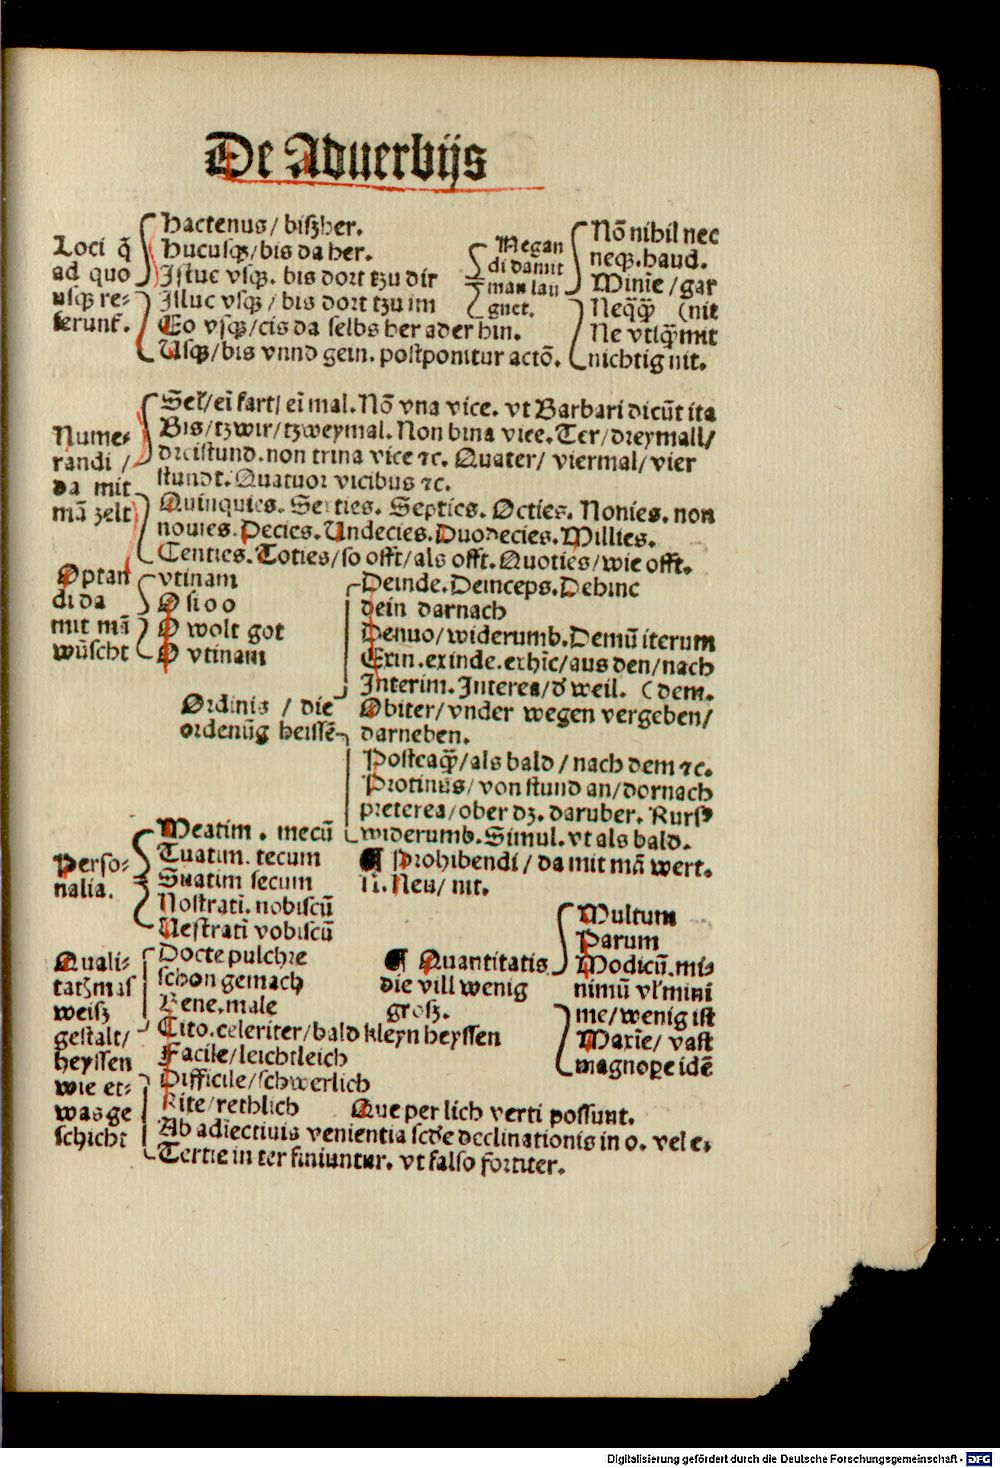 De Aduerbijs
Loci q̄
ad quo
usqꝫ re-
ferunt̄.
Hactenus/ biſzher.
Hucuſqꝫ/bis da her.
Iſtuc vſqꝫ. bis dort tzu dir
Illuc vſqꝫ / bis dort tzu im
Eo vſqꝫ/cis da ſelbs her ader hin.
Uſqꝫ/bis vnnd gein. poſtponitur actō.
Negan
di damit
man lau
gnet.
Nō nihil nec
neqꝫ. haud.
Minīe /gar
Neq̄q̄ (nit
Ne vtiq̄ mit
nichtig nit.
Nume-
randi /
da mit
mā zelt
Sel̄/ eī fart/ eī mal. Nō vna vice. vt Barbari dicūt ita
Bis/tzwir/tzweymal. Non bina vice. Ter/dreymall/
dreiſtund. non trina vice ⁊c. Quater/ viermal/vier
ſtundt. Quatuor vicibus ⁊c.
Quinquies. Sexties. Septies. Octies. Nonies. non
nouies. Decies. Undecies. Duodecies. Millies.
Centies. Toties/ſo offt/als offt. Quoties/wie offt.
Optan
di da
mit mā
wūſcht
vtinam
O ſi o o
O wolt got
O vtinam
Ordinis / die
ordenūg heiſſē
Deinde. Deinceps. Dehinc
dein darnach
Denuo/widerumb. Demū iterum
Exin. exinde. exhīc/aus den/nach
Interim. Interea/d' weil. (dem.
Obiter/vnder wegen vergeben/
darneben.
Poſteaq̄/als bald/nach dem ⁊c.
Protinus/von ſtund an/dornach
preterea/ober dz. daruber. Rurſꝰ
widerumb. Simul. vt als bald.
Perſo-
nalia.
Meatim. mecū
Tuatim. tecum
Suatim ſecum
Noſtratī. nobiſcū
Ueſtratī vobiſcū
¶ Prohibendi/ da mit mā wert.
Ni. Neu/ nit.
Quali-
tatꝫ mas
weiſz
geſtalt/
heyſſen
wie et-
was ge
ſchicht
Docte pulchre
ſchon gemach
Bene. male
Cito. celeriter/bald kleyn heyſſen
Facile/leichtleich
Difficile/ſchwerlich
Rite/rethlich Que per lich verti poſſunt.
Ab adiectiuis venientia ſcd'e declinationis in o. vel e.
Tertie in ter finiuntur. vt falſo fortiter.
¶ Quantitatis
die vill wenig
groſz.
Multum
Parum
Modicū. mi-
nimū vl' mini
me/wenig iſt
Maxīe/ vaſt
magnope idē
Digitalisierung gefördert durch die Deutsche Forschungsgemeinschaft - DFG